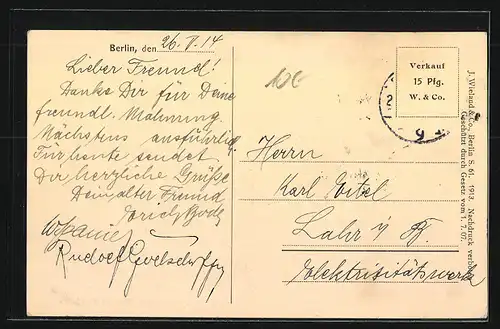 Berlin, den 26. V. 14
Lieber Freund!
Danke Dir für Deine
freundl. Mahnung.
Nächstens ausführlich.
Für heute sendet
Dir herzliche Grüße
Dein alter Freund
Erich
Rudolf
Verkauf
15 Pfg.
W. & Co.
Herrn
Karl Eitel
Lahr i/ B.
Elektrizitätswerk
J. Wieland & Co., Berlin S. 61. 1913. Nachdruck verb.
Geschützt durch Gesetz vom 1. 7. 07.